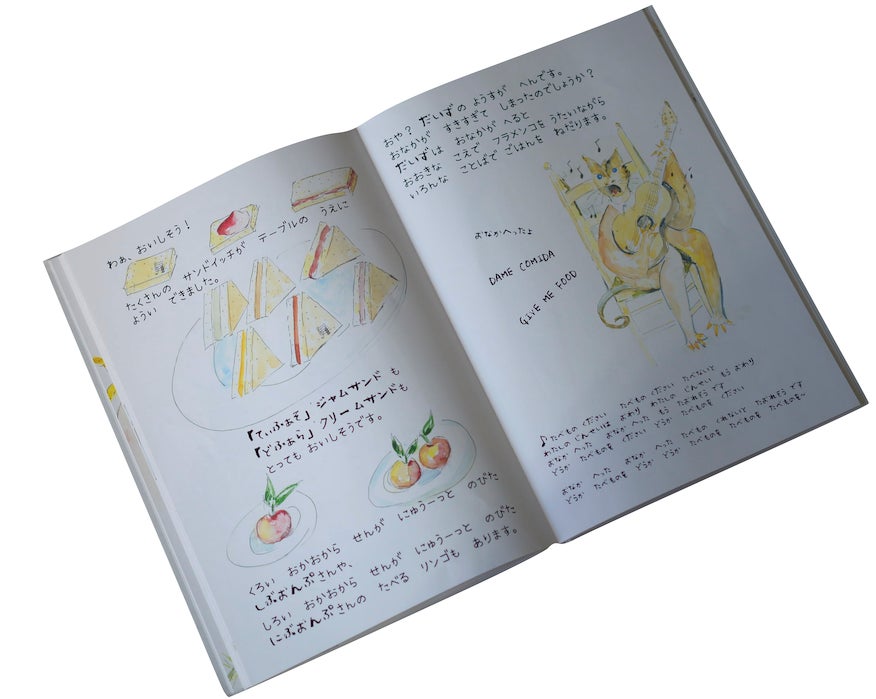 わぁ、おいしそう！
たくさんの サンドイッチが テーブルの うえに
ようい できました。
「てぃふぁそ」ジャムサンド も
「どふぁら」クリームサンドも
とっても おいしそうです。
くろい おかおから せんが にゅうーっと のびた
しぶおんぷさんや、
しろい おかおから せんが にゅうーっと のびた
にぶおんぷさんの たべる リンゴも あります。
おや？ だいずの ようすが へんです。
おなかが すきすぎて しまったのでしょうか？
だいずは おなかがへると
おおきな こえで フラメンコを うたいながら
いろんな ことばで ごはんを ねだります。
おなかへったよ
DAME COMIDA
GIVE ME FOOD
♪たべもの ください たべもの ください たべないと
わたしの じんせいは おわり わたしの じんせい もう おわり
おなか へった おなか へった もう たおれそう です
どうか たべものを ください どうか たべものを ください
おなか へった おなか へった たべもの くれないと たおれそう です
どうか たべものを どうか たべものを たべものを たべものを～